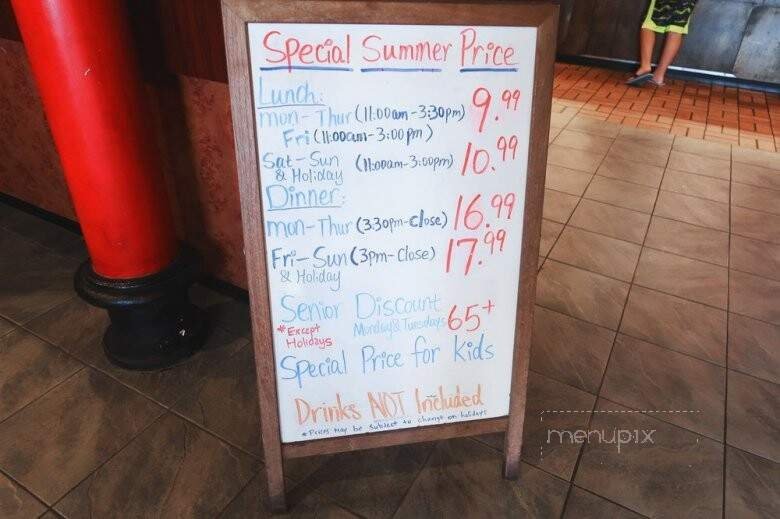 Special Summer Price
Lunch:
mon-Thur (11:00am-3:30pm) 9.99
Fri (11:00am-3:00pm)
Sat-Sun (11:00am-3:00pm) 10.99
& Holiday
Dinner:
mon-Thur (3:30pm-Close) 16.99
Fri-Sun (3pm-Close) 17.99
& Holiday
Senior Discount
*Except Monday&Tuesdays 65+
Holidays
Special Price for kids
Drinks NOT Included
*Prices may be subject to change on holidays
menupix